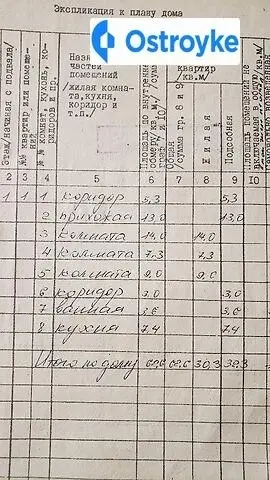 Экспликация к плану дома
Ostroyke
Этаж/начиная с подвала/
№№ квартир или помеще-
ний
№№ комнат, кухонь, ко-
ридоров и пр.
Назн
частей
помещений
/жилая комна-
та, кухня,
коридор и
т.п./
Площадь по внутренне
обмеру/кв.
/сумм
граф
и 10/
Общая
сумма гр. 8 и 9
квартир
/кв.м/
Жилая
Подсобная
Площадь помещений не
включаемая в общую
/кв.м/
2 3 4 5 6 7 8 9 10
1 1 1 коридор 5,3 5,3
2 прихожая 13,0 13,0
3 комната 14,0 14,0
4 комната 7,3 7,3
5 комната 9,0 9,0
6 коридор 3,0 3,0
7 ванная 3,6 3,6
8 кухня 7,4 7,4
Итого по дому 62,6 62,6 30,3 32,3